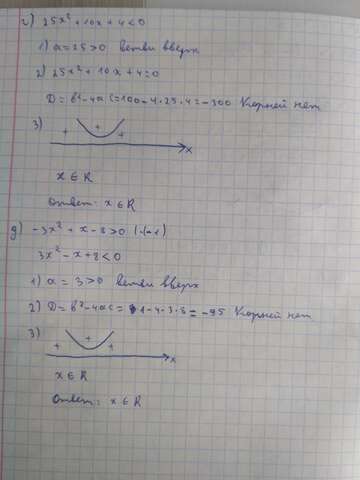 г) 25x² + 10x + 4 < 0
1) a = 25 > 0 ветви вверх
2) 25x² + 10x + 4 = 0
D = b² - 4ac = 100 - 4·25·4 = -300 Корней нет
3) + + +
x
x ∈ R
Ответ: x ∈ R
д) -3x² + x - 8 > 0 | ·(-1)
3x² - x + 8 < 0
1) a = 3 > 0 ветви вверх
2) D = b² - 4ac = 1 - 4·3·8 = -95 Корней нет
3) + + +
x
x ∈ R
Ответ: x ∈ R